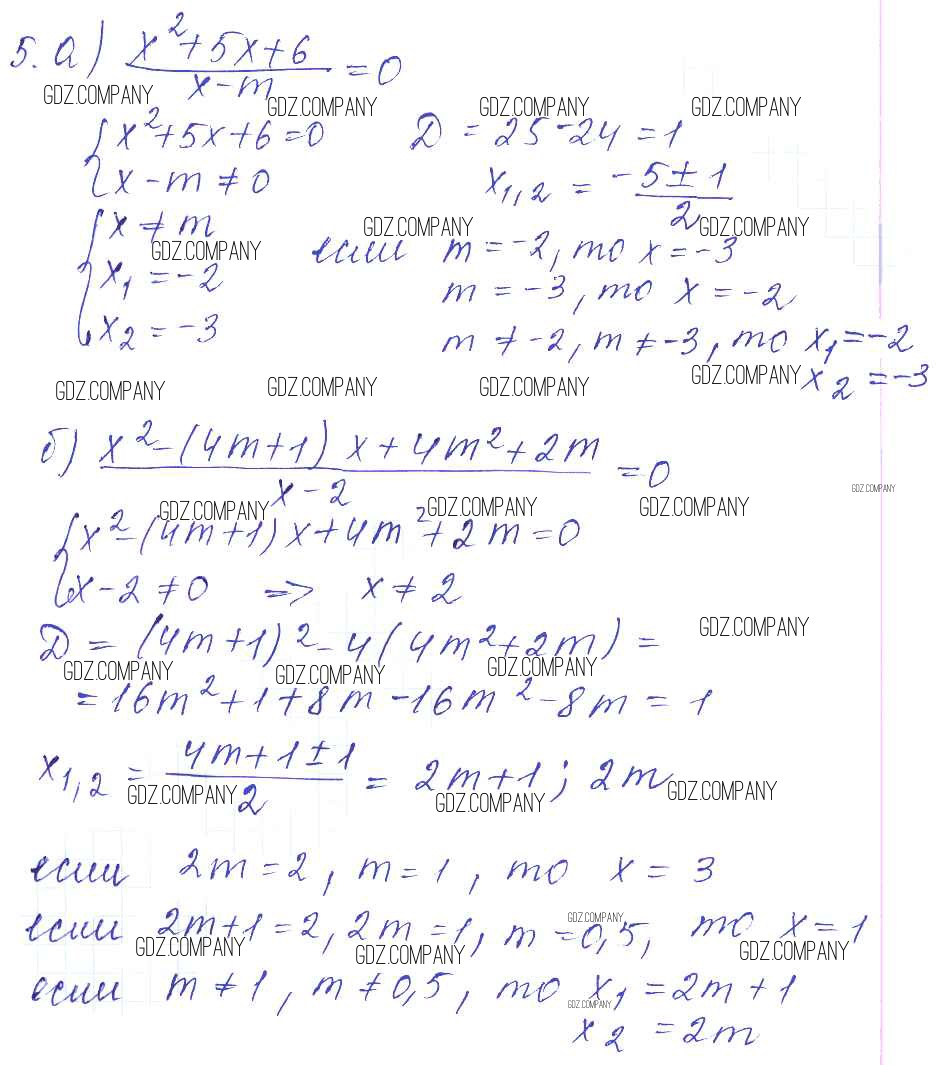 5. а) (x²+5x+6)/(x-m) = 0
GDZ.COMPANY GDZ.COMPANY GDZ.COMPANY GDZ.COMPANY
{ x²+5x+6=0 Д = 25-24 = 1
{ x-m≠0 x₁,₂ = (-5±1)/2
{ x≠m
GDZ.COMPANY GDZ.COMPANY GDZ.COMPANY
x₁ = -2 если m = -2, то x = -3
m = -3, то x = -2
x₂ = -3 m ≠ -2, m ≠ -3, то x₁ = -2
x₂ = -3
GDZ.COMPANY GDZ.COMPANY GDZ.COMPANY GDZ.COMPANY
б) (x²-(4m+1)x+4m²+2m)/(x-2) = 0
GDZ.COMPANY GDZ.COMPANY GDZ.COMPANY GDZ.COMPANY
{ x²-(4m+1)x+4m²+2m=0
{ x-2≠0 => x≠2
Д = (4m+1)²-4(4m²+2m) =
GDZ.COMPANY GDZ.COMPANY GDZ.COMPANY GDZ.COMPANY
= 16m²+1+8m-16m²-8m = 1
x₁,₂ = (4m+1±1)/2 = 2m+1; 2m
GDZ.COMPANY GDZ.COMPANY GDZ.COMPANY
если 2m=2, m=1, то x = 3
если 2m+1=2, 2m=1, m=0,5, то x=1
GDZ.COMPANY GDZ.COMPANY GDZ.COMPANY GDZ.COMPANY
если m≠1, m≠0,5, то x₁ = 2m+1
GDZ.COMPANY
x₂ = 2m